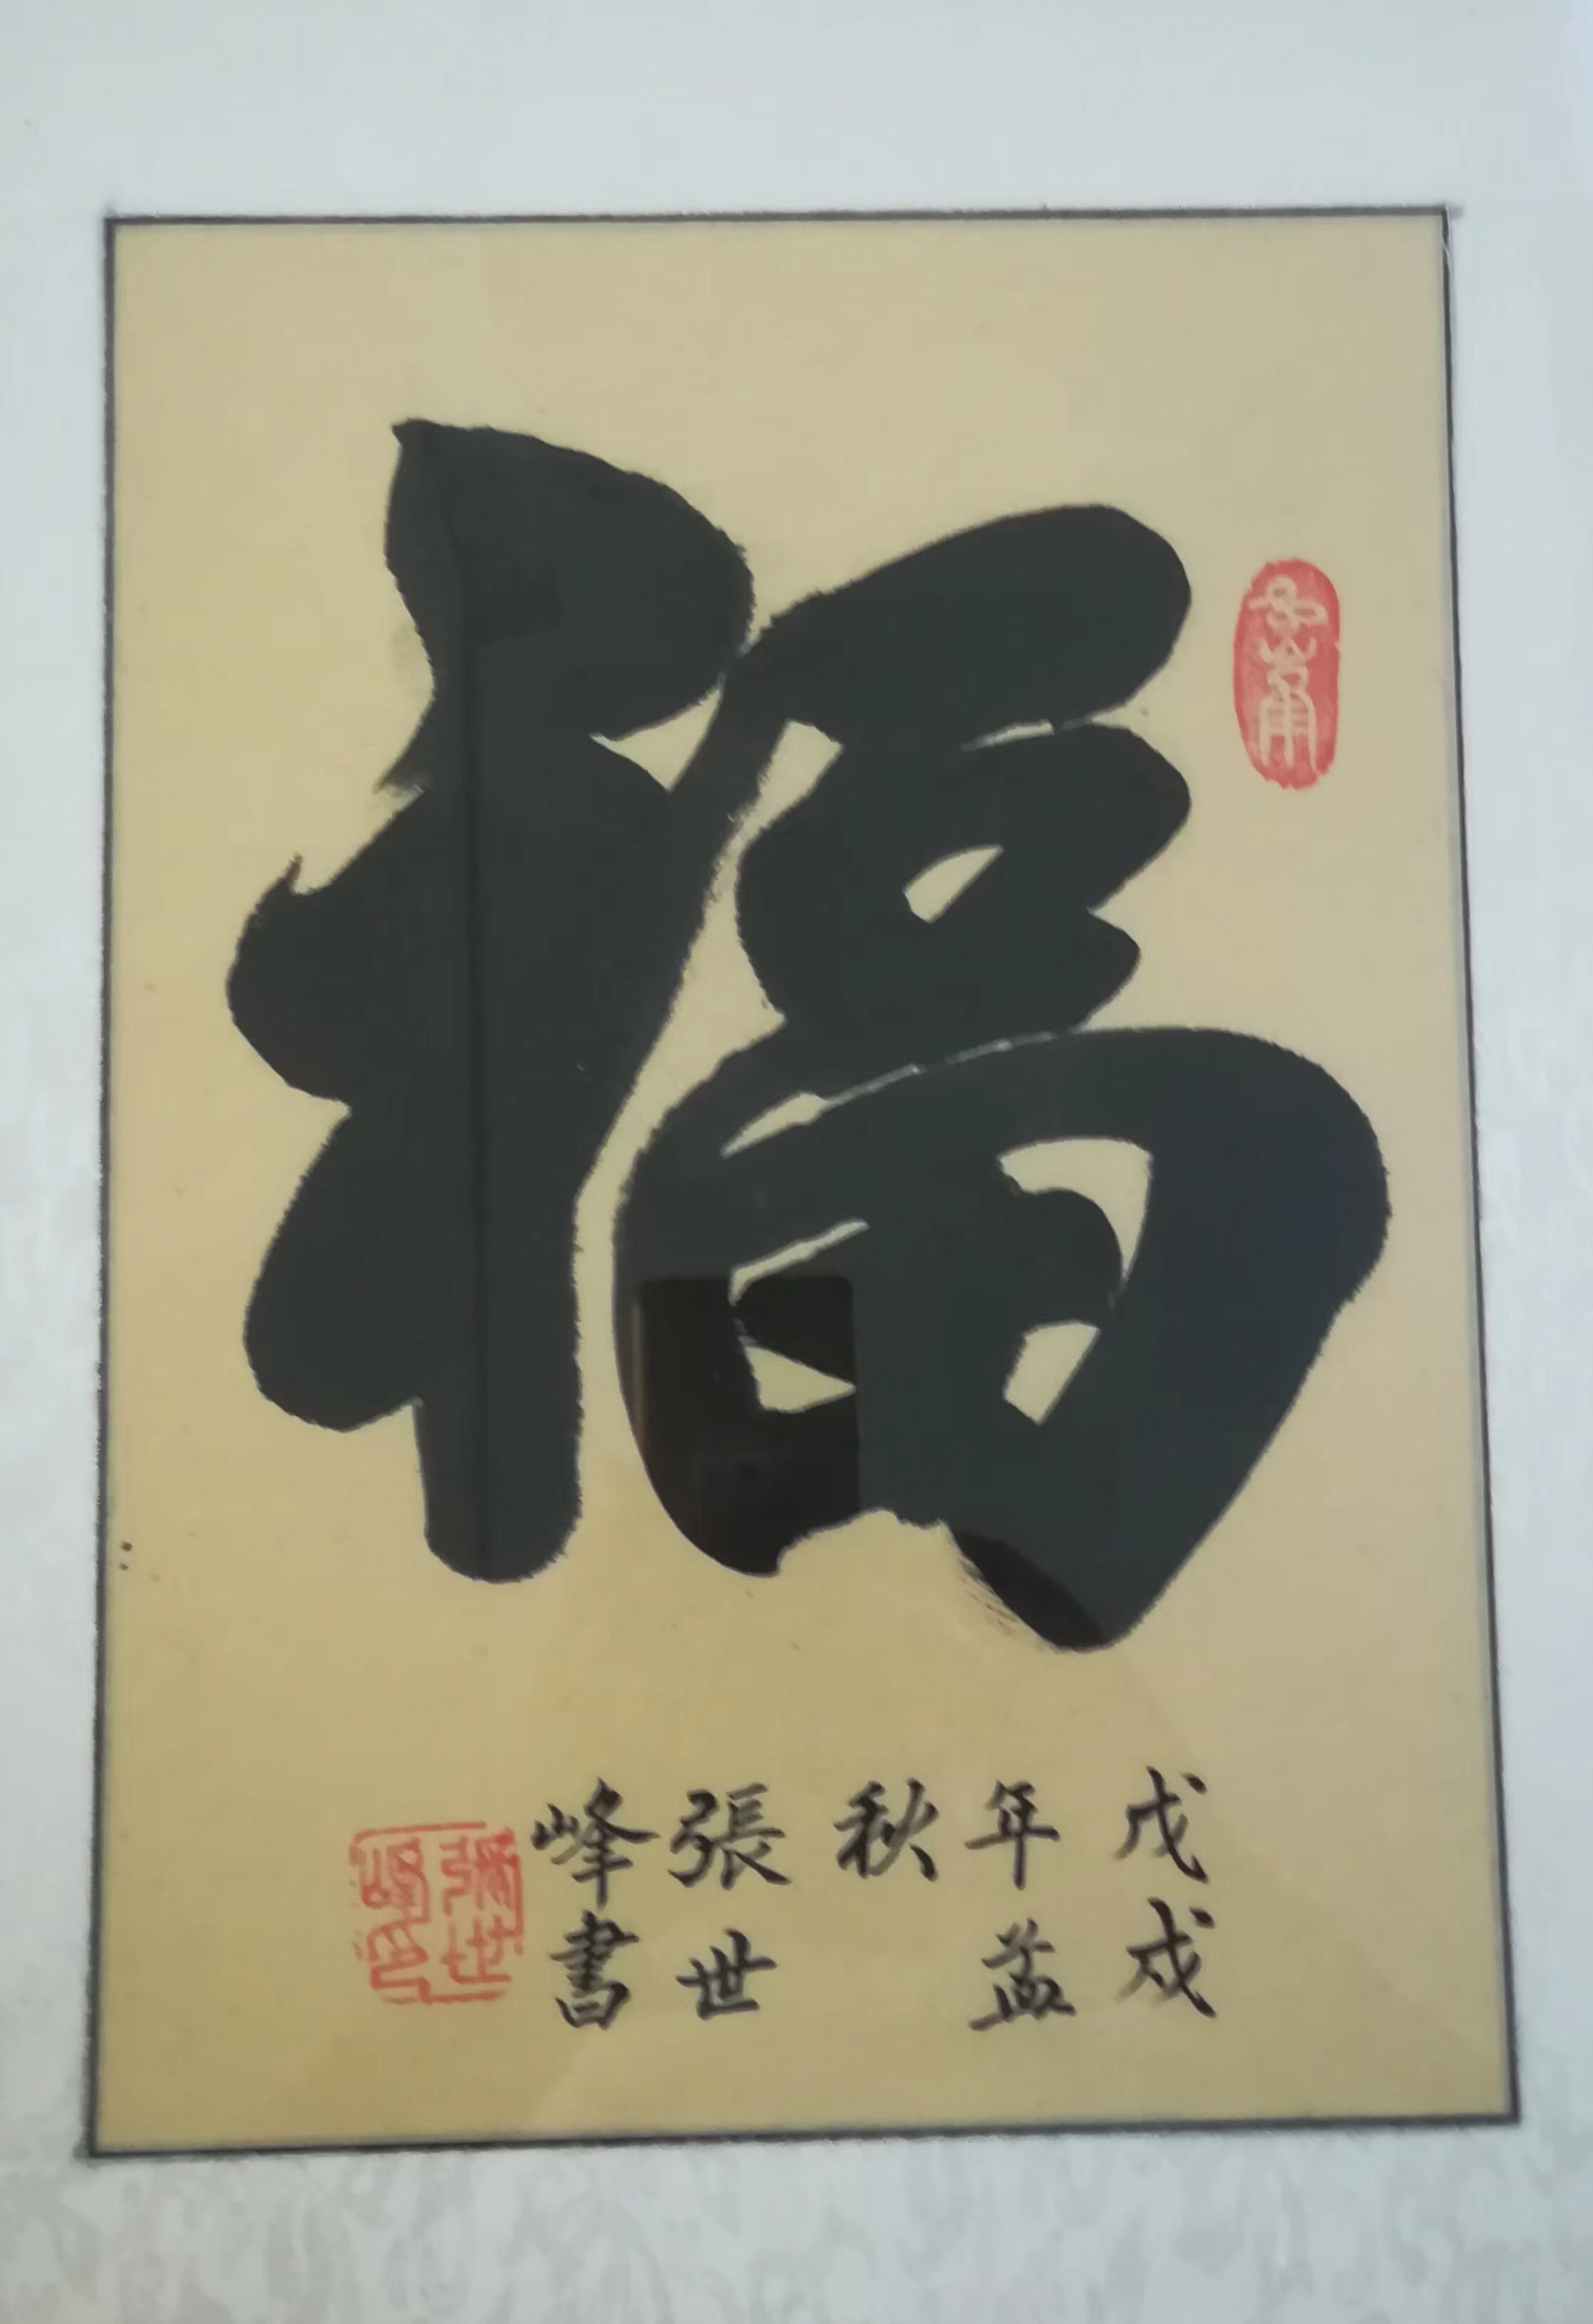 福
戊戌
年孟
秋
張世
峰書
張世
峰印